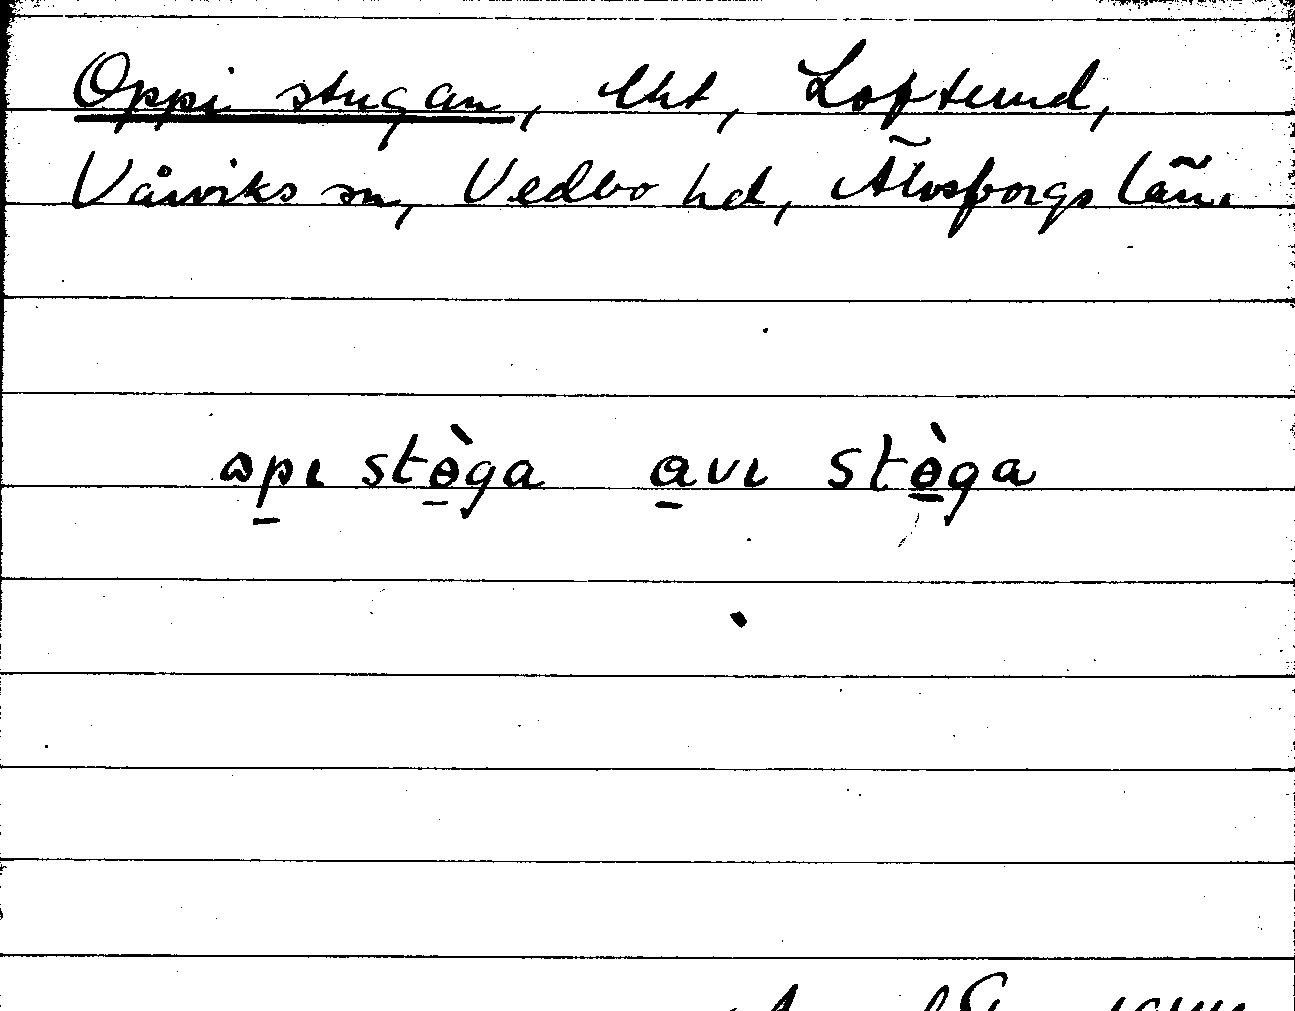 Oppi stugan, lht, Loftemd,
Vårviks sn, Vedbo hd, Älvsborgs län.
ɷpɩ stɵ̀ga avɩ stɵ̀ga